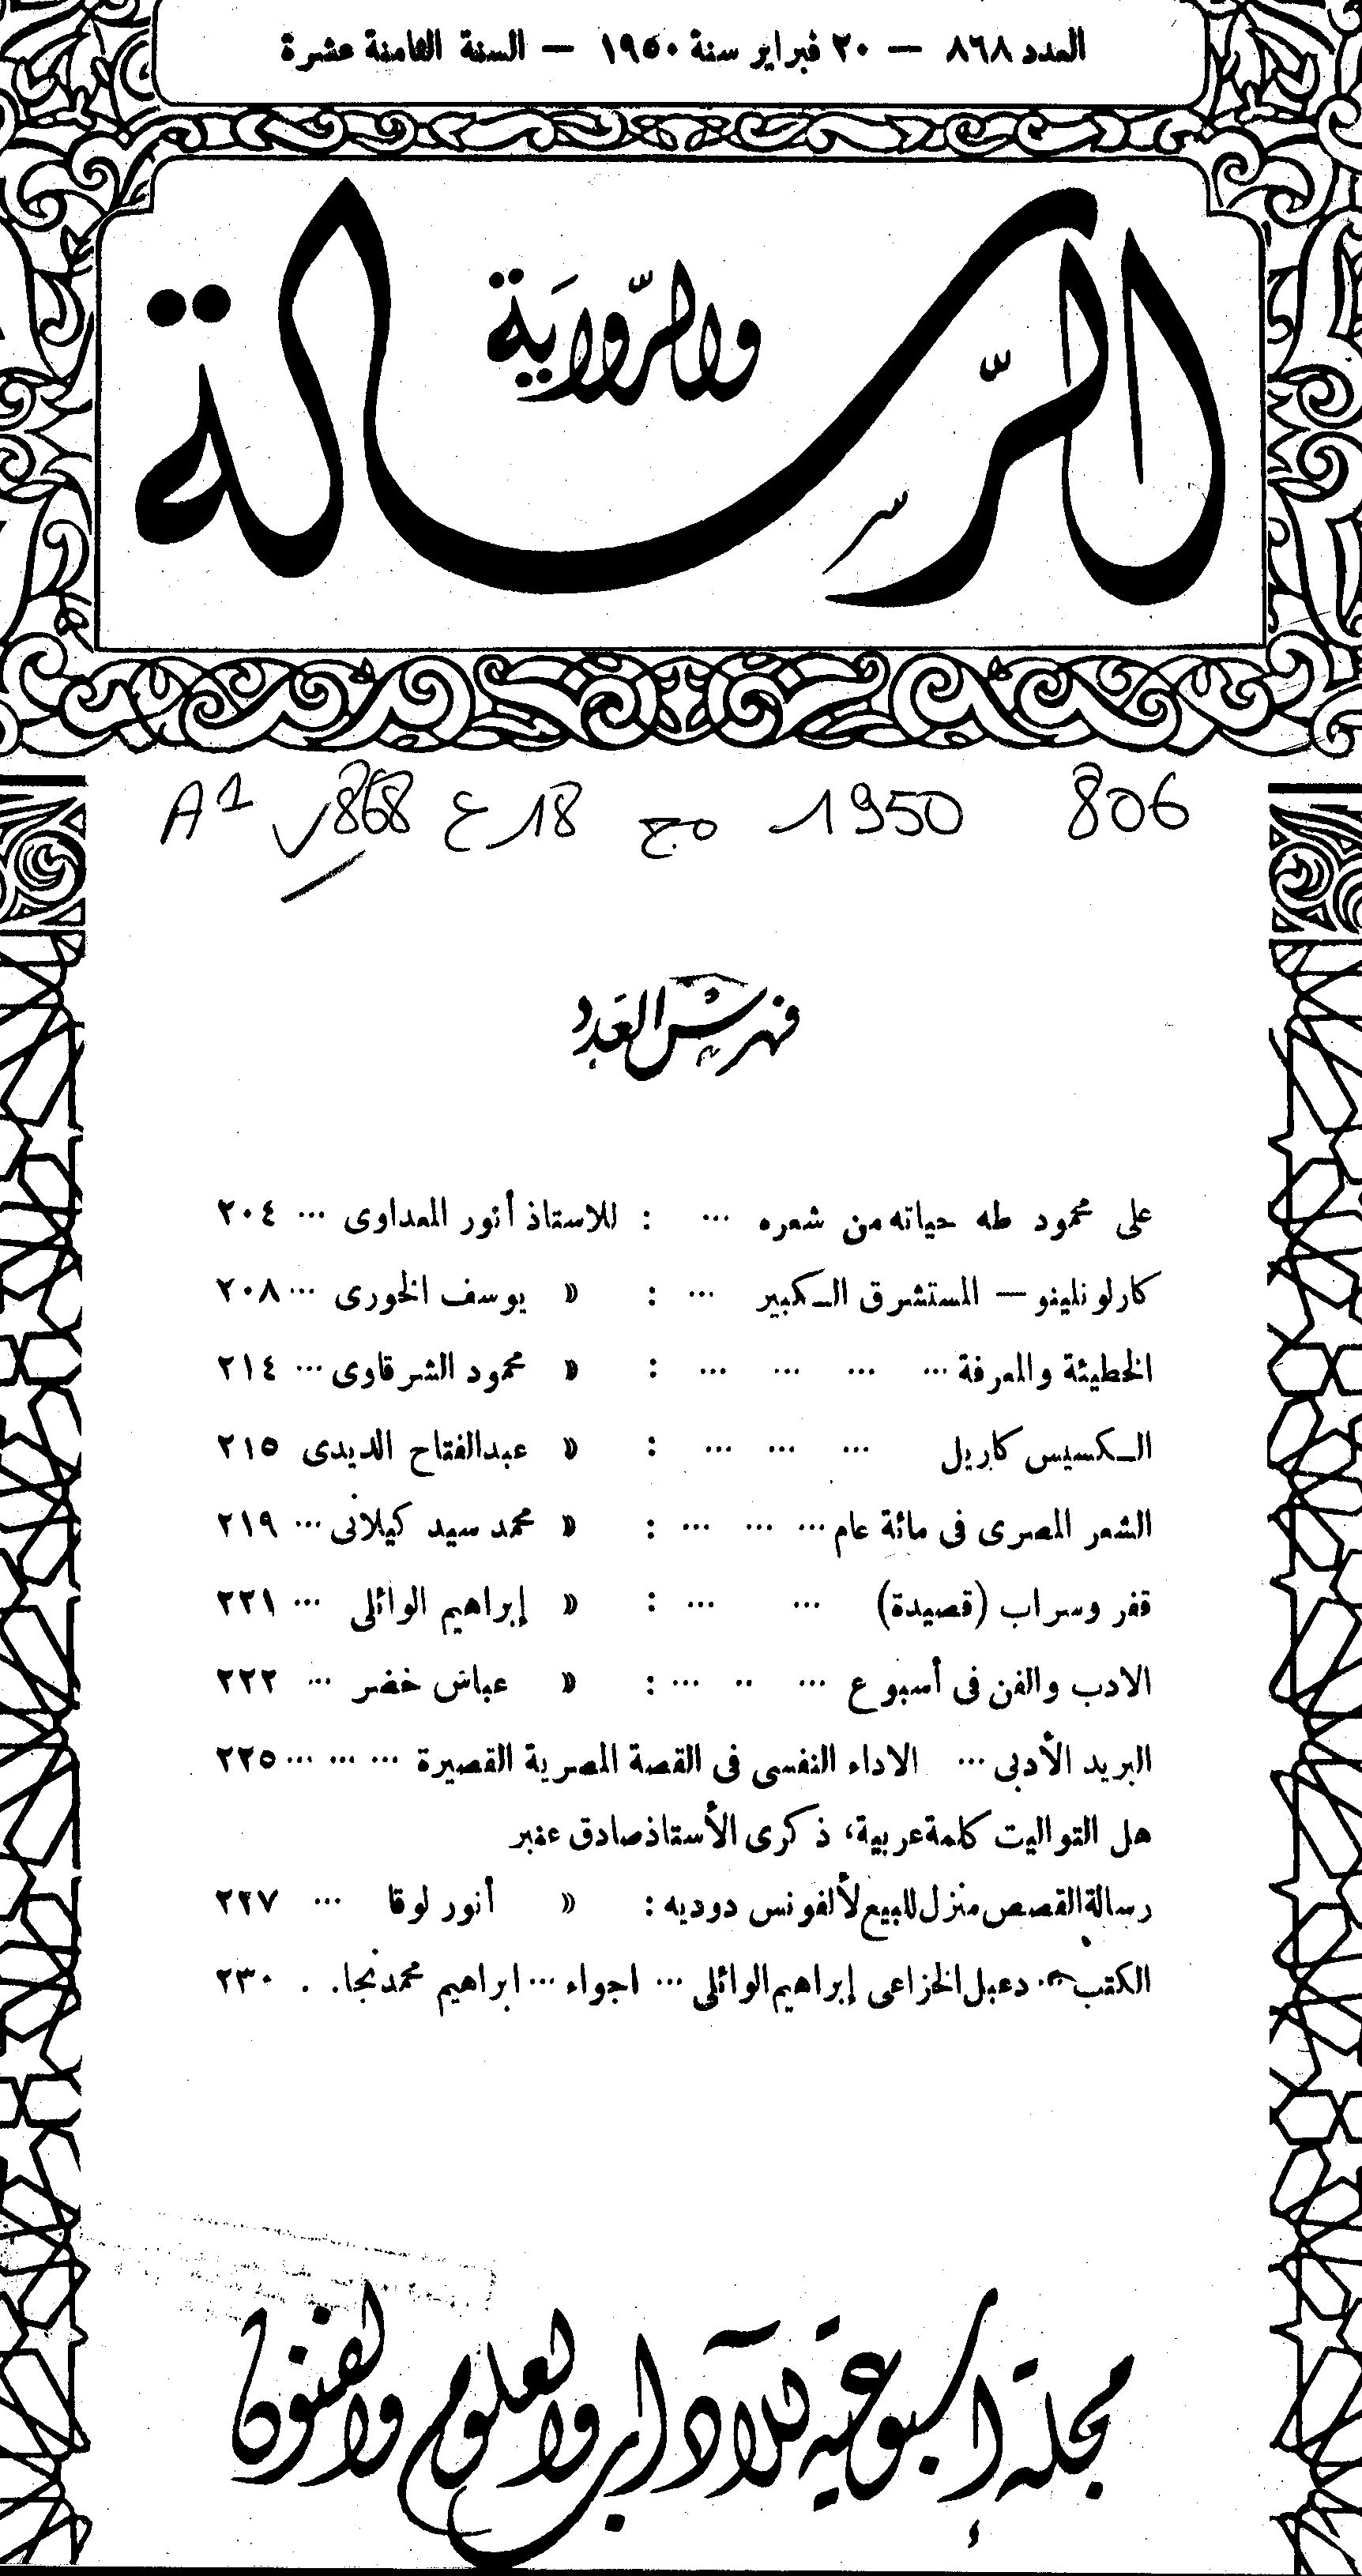 العدد ٨٦٨ — ٢٠ فبراير سنة ١٩٥٠ — السنة الثامنة عشرة
الرسالة
والرواية
806 1950 مج 18 ع 868 A1
فهرس العدد
على محمود طه حياته من شعره ... : للاستاذ أنور المعداوى ... ٢٠٤
كارلو نلينو — المستشرق الكبير ... : » يوسف الخورى ... ٢٠٨
الخطيئة والمعرفة ... ... ... ... : » محمود الشرقاوى ... ٢١٤
الكسيس كاريل ... ... ... : » عبدالفتاح الديدى ٢١٥
الشعر المصرى فى مائة عام ... ... ... : » محمد سيد كيلانى ... ٢١٩
قفر وسراب (قصيدة) ... ... : » إبراهيم الوائلى ... ٢٢١
الادب والفن فى أسبوع ... .. ... : » عباس خضر ... ٢٢٢
البريد الأدبى ... الاداء النفسى فى القصة المصرية القصيرة ... ... ... ٢٢٥
هل التواليت كلمة عربية، ذكرى الأستاذ صادق عنبر
رسالة القصص منزل للبيع لألفونس دوديه : » أنور لوقا ... ٢٢٧
الكتب ... دعبل الخزاعى إبراهيم الوائلى ... اجواء ... ابراهيم محمد نجا . . ٢٣٠
مجلة إسبوعية للآداب والعلوم والفنون